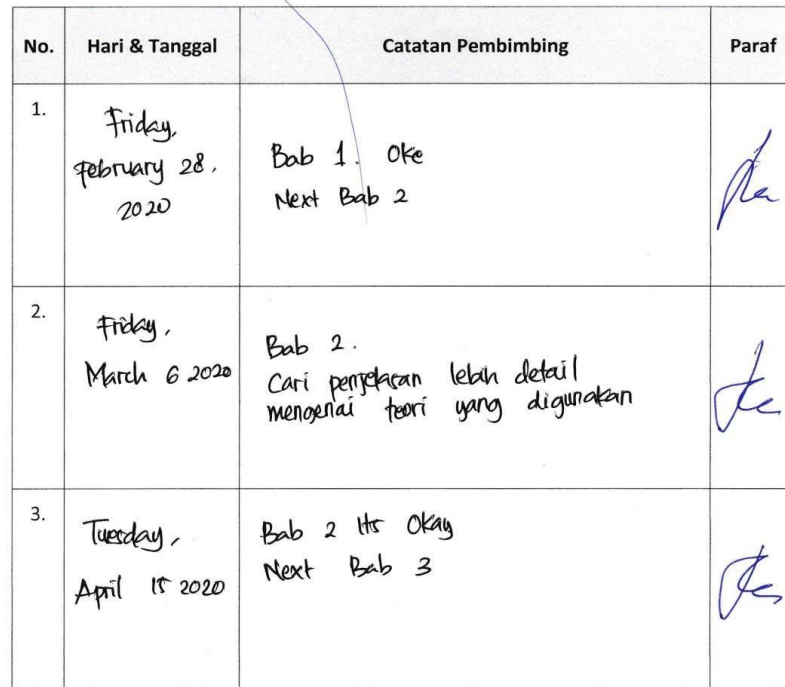 No. Hari & Tanggal Catatan Pembimbing Paraf
1.
Friday,
February 28,
2020
Bab 1. Oke
Next Bab 2
2.
Friday,
March 6 2020
Bab 2.
Cari penjelasan lebih detail
mengenai teori yang digunakan
3.
Tuesday,
April 15 2020
Bab 2 Its Okay
Next Bab 3